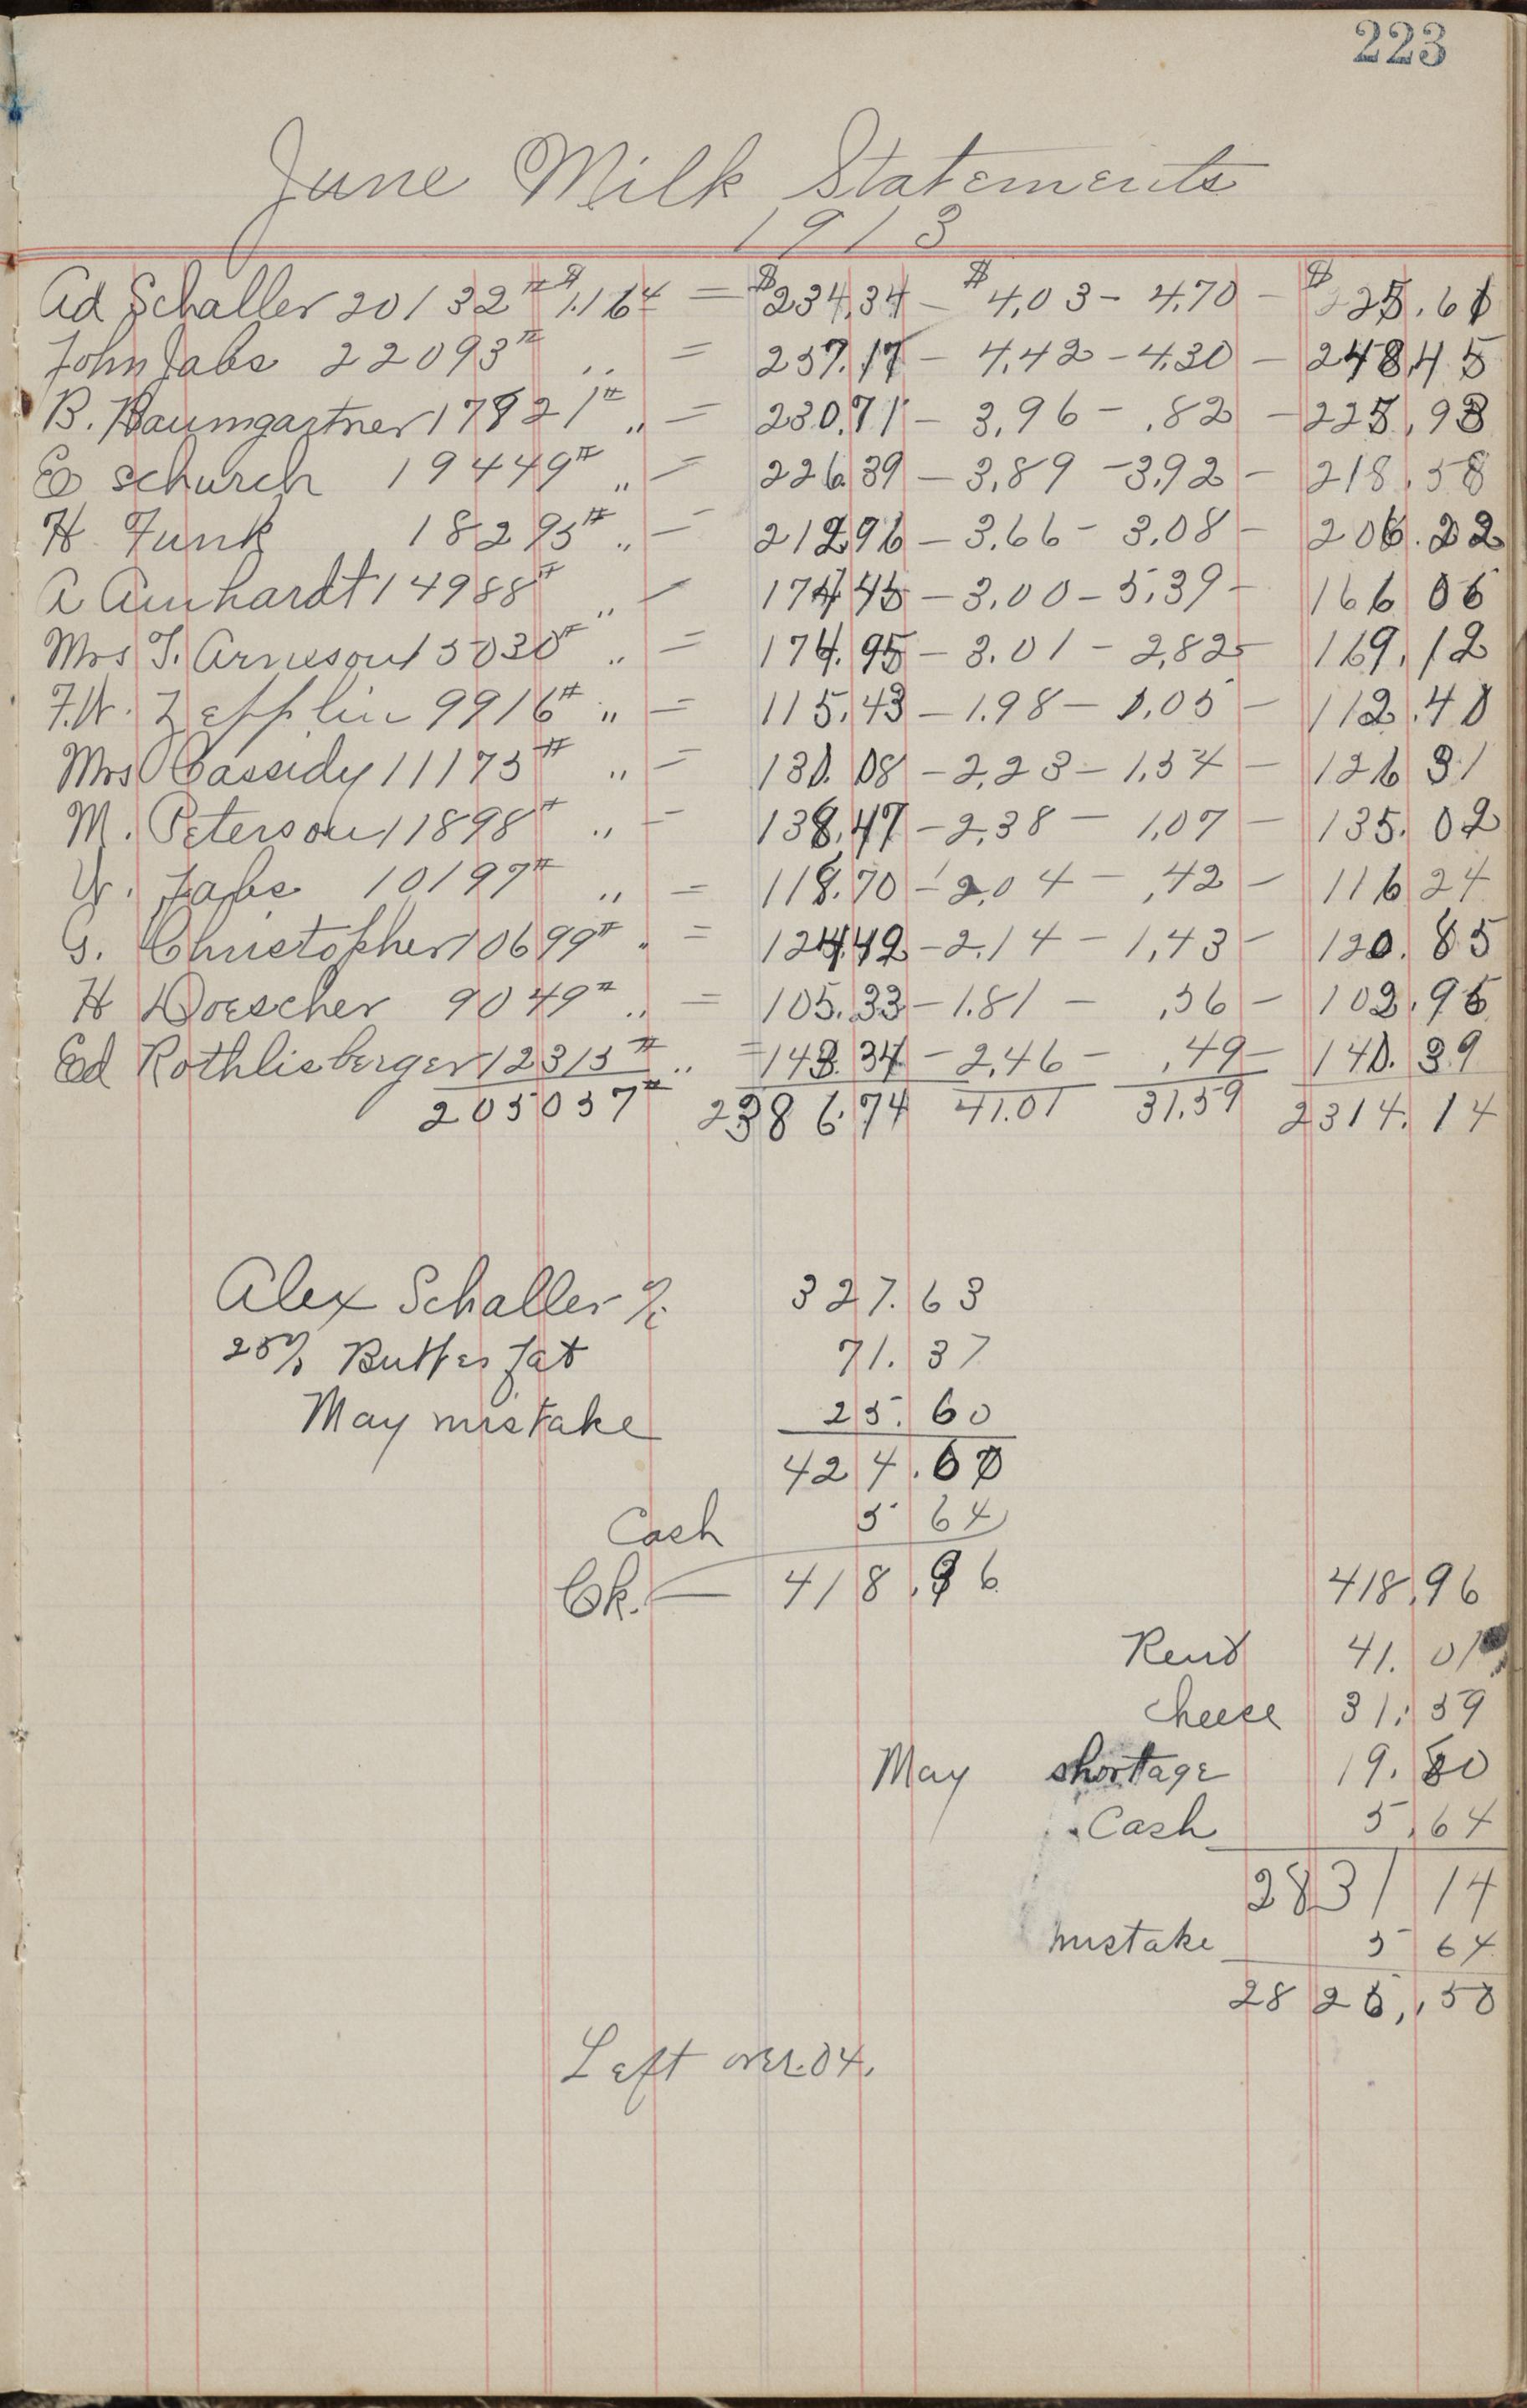 223
June Milk Statements
1913
Ad Schaller 20132# $1.16 4 = $234.34 - $4.03 - 4.70 - $225.61
John Jabs 22093# " = 257.17 - 4.42 - 4.30 - 248.45
B. Baumgartner 17821# " = 230.71 - 3.96 - .82 - 225.93
E Schurch 19449# " = 226.39 - 3.89 - 3.92 - 218.58
H Funk 18295# " = 212.96 - 3.66 - 3.08 - 206.22
A Amhardt 14988# " - 174.45 - 3.00 - 5.39 - 166 06
Mrs T. Arneson 15030# " = 174.95 - 3.01 - 2.82 - 169.12
F.W. Zepplin 9916# " = 115.43 - 1.98 - 1.05 - 112.40
Mrs Cassidy 11175# " = 130.08 - 2.23 - 1.54 - 126 31
M. Peterson 11898# " = 138.47 - 2.38 - 1.07 - 135.02
W. Jabs 10197# " = 118.70 - 2.04 - .42 - 116 24
G. Christopher 10699# " = 124.42 - 2.14 - 1.43 - 120.85
H Doescher 9049# " = 105.33 - 1.81 - .56 - 102.96
Ed Rothlisberger 12315# " = 143.34 - 2.46 - .49 - 140.39
205057# 2386.74 41.01 31.59 2314.14
Alex Schaller % 327.63
25% Butter fat 71.37
May mistake 25.60
424.60
Cash 5 64
Ck. — 418.96 418.96
Rent 41.01
Cheese 31.59
May shortage 19.80
Cash 5.64
2831 14
mistake 5 64
2825.50
Left over .04.